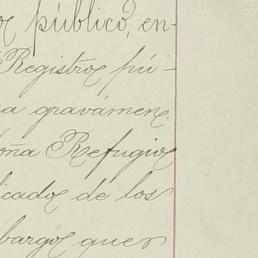 os público, en-
Registros pú-
a gravámen.
oña Refugio
licados de los
bargos que